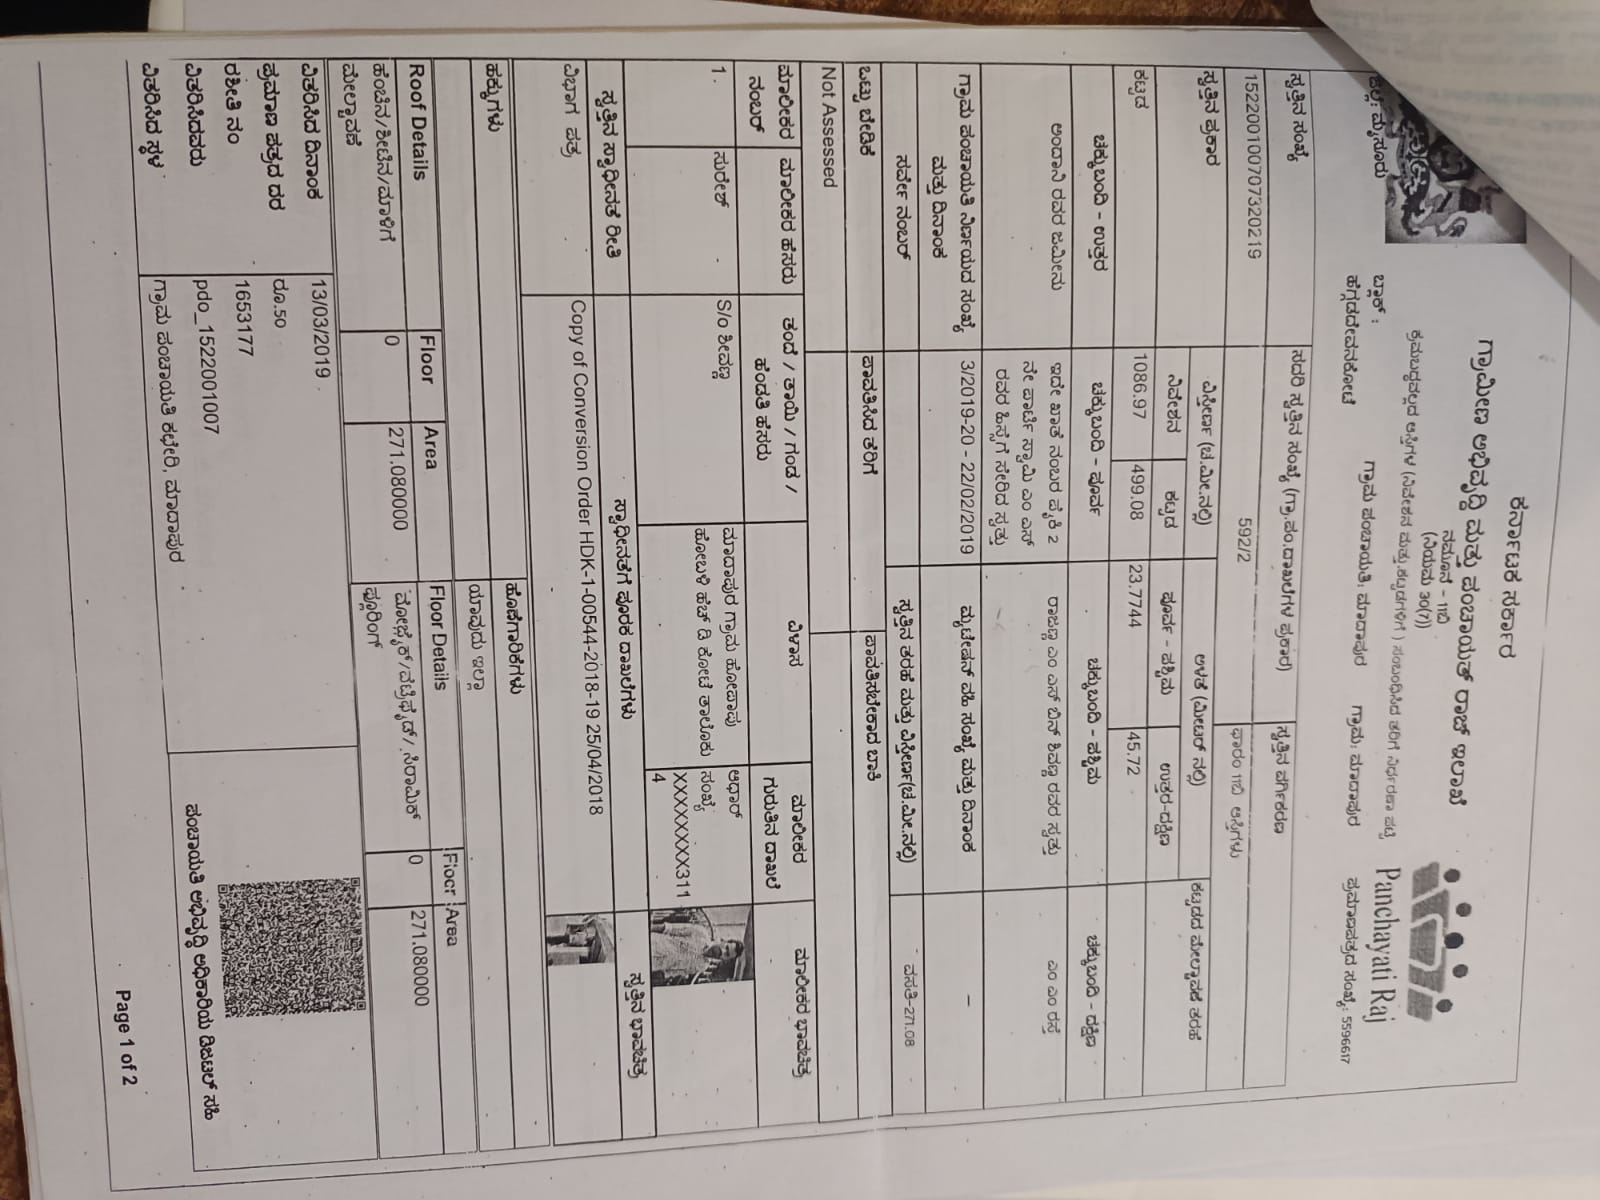 ಕರ್ನಾಟಕ ಸರ್ಕಾರ
ಗ್ರಾಮೀಣ ಅಭಿವೃದ್ಧಿ ಮತ್ತು ಪಂಚಾಯತ್ ರಾಜ್ ಇಲಾಖೆ
ನಮೂನೆ - 11ಬಿ
(ನಿಯಮ 30(7))
ಕ್ರಮಬದ್ಧವಲ್ಲದ ಆಸ್ತಿಗಳ (ನಿವೇಶನ ಮತ್ತು ಕಟ್ಟಡಗಳಿಗೆ ) ಸಂಬಂಧಿಸಿದ ತೆರಿಗೆ ನಿರ್ಧರಣಾ ಪಟ್ಟಿ
Panchayati Raj
ಜಿಲ್ಲೆ: ಮೈಸೂರು
ಬ್ಲಾಕ್ :
ಹೆಗ್ಗಡದೇವನಕೋಟೆ
ಗ್ರಾಮ ಪಂಚಾಯತಿ: ಮಾದಾಪುರ
ಗ್ರಾಮ: ಮಾದಾಪುರ
ಪ್ರಮಾಣಪತ್ರದ ಸಂಖ್ಯೆ: 5596617
ಸ್ವತ್ತಿನ ಸಂಖ್ಯೆ
ಸದರಿ ಸ್ವತ್ತಿನ ಸಂಖ್ಯೆ (ಗ್ರಾ.ಪಂ.ದಾಖಲೆಗಳ ಪ್ರಕಾರ)
ಸ್ವತ್ತಿನ ವರ್ಗೀಕರಣ
152200100707320219
592/2
ಫಾರಂ 11ಬಿ ಆಸ್ತಿಗಳು
ಸ್ವತ್ತಿನ ಪ್ರಕಾರ
ವಿಸ್ತೀರ್ಣ (ಚ.ಮೀ.ನಲ್ಲಿ)
ಅಳತೆ (ಮೀಟರ್ ನಲ್ಲಿ)
ಕಟ್ಟಡದ ಮೇಲ್ಛಾವಣಿ ತರಹೆ
ನಿವೇಶನ
ಕಟ್ಟಡ
ಪೂರ್ವ - ಪಶ್ಚಿಮ
ಉತ್ತರ-ದಕ್ಷಿಣ
ಕಟ್ಟಡ
1086.97
499.08
23.7744
45.72
ಚಕ್ಕುಬಂದಿ - ಉತ್ತರ
ಚಕ್ಕುಬಂದಿ - ಪೂರ್ವ
ಚಕ್ಕುಬಂದಿ - ಪಶ್ಚಿಮ
ಚಕ್ಕುಬಂದಿ - ದಕ್ಷಿಣ
ಅಂದಾನಿ ರವರ ಜಮೀನು
ಇದೇ ಖಾತೆ ನಂಬರ ಪೈಕಿ 2
ನೇ ಪಾರ್ಟಿ ಸ್ವಾಮಿ ಎಂ ಎಸ್
ರವರ ಹಿಸ್ಸೆಗೆ ಸೇರಿದ ಸ್ವತ್ತು
ರಾಜಣ್ಣ ಎಂ ಎಸ್ ಬಿನ್ ಶಿವಣ್ಣ ರವರ ಸ್ವತ್ತು
ಎಂ ಎಂ ರಸ್ತೆ
ಗ್ರಾಮ ಪಂಚಾಯತಿ ನಿರ್ಣಯದ ಸಂಖ್ಯೆ
ಮತ್ತು ದಿನಾಂಕ
3/2019-20 - 22/02/2019
ಮ್ಯುಟೇಷನ್ ವಹಿ ಸಂಖ್ಯೆ ಮತ್ತು ದಿನಾಂಕ
-
ಸರ್ವೇ ನಂಬರ್
ಸ್ವತ್ತಿನ ತರಹೆ ಮತ್ತು ವಿಸ್ತೀರ್ಣ(ಚ.ಮೀ.ನಲ್ಲಿ)
ವಸತಿ-271.08
ಒಟ್ಟು ಬೇಡಿಕೆ
ಪಾವತಿಸಿದ ತೆರಿಗೆ
ಪಾವತಿಸಬೇಕಾದ ಬಾಕಿ
Not Assessed
ಮಾಲೀಕರ
ನಂಬರ್
ಮಾಲೀಕರ ಹೆಸರು
ತಂದೆ / ತಾಯಿ / ಗಂಡ /
ಹೆಂಡತಿ ಹೆಸರು
ವಿಳಾಸ
ಮಾಲೀಕರ
ಗುರುತಿನ ದಾಖಲೆ
ಮಾಲೀಕರ ಭಾವಚಿತ್ರ
1.
ಸುರೇಶ್
S/o ಶಿವಣ್ಣ
ಮಾದಾಪುರ ಗ್ರಾಮ ಹೋಮಾಪು
ಹೋಬಳಿ ಹೆಚ್ ಡಿ ಕೋಟೆ ತಾಲೊಕು
ಆಧಾರ್
ಸಂಖ್ಯೆ
XXXXXXXX311
4
ಸ್ವತ್ತಿನ ಸ್ವಾಧೀನತೆ ರೀತಿ
ಸ್ವಾಧೀನತೆಗೆ ಪೂರಕ ದಾಖಲೆಗಳು
ಸ್ವತ್ತಿನ ಭಾವಚಿತ್ರ
ವಿಭಾಗ ಪತ್ರ
Copy of Conversion Order HDK-1-00544-2018-19 25/04/2018
ಹಕ್ಕುಗಳು
ಹೊಣೆಗಾರಿಕೆಗಳು
ಯಾವುದು ಇಲ್ಲಾ
Roof Details
Floor
Area
Floor Details
Floor
Area
ಹೆಂಚಿನ/ಶೀಟಿನ/ಮಾಳಿಗೆ
ಮೇಲ್ಛಾವಣಿ
0
271.080000
ಮೋಝೈಕ್/ವಿಟ್ರಿಫೈಡ್/ಸೆರಾಮಿಕ್
ಫ್ಲೋರಿಂಗ್
0
271.080000
ವಿತರಿಸಿದ ದಿನಾಂಕ
13/03/2019
ಪ್ರಮಾಣ ಪತ್ರದ ದರ
ರೂ.50
ರಶೀತಿ ನಂ
1653177
ವಿತರಿಸಿದವರು
pdo_1522001007
ವಿತರಿಸಿದ ಸ್ಥಳ
ಗ್ರಾಮ ಪಂಚಾಯತಿ ಕಛೇರಿ, ಮಾದಾಪುರ
ಪಂಚಾಯತಿ ಅಭಿವೃದ್ಧಿ ಅಧಿಕಾರಿಯ ಡಿಜಿಟಲ್ ಸಹಿ
Page 1 of 2